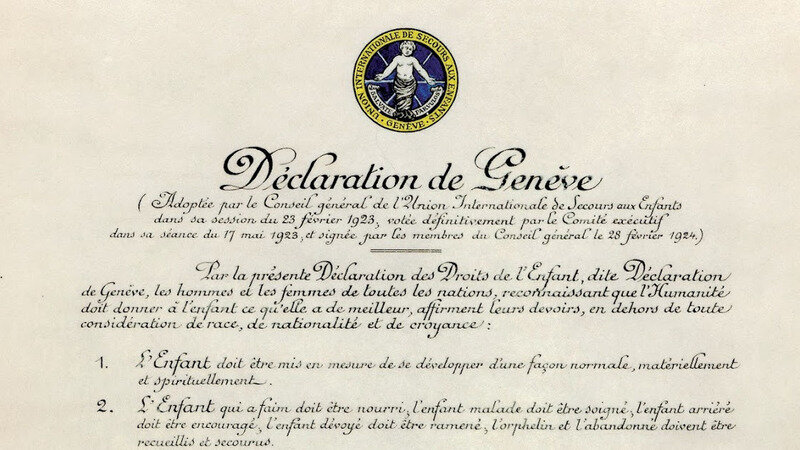 UNION INTERNATIONALE DE SECOURS AUX ENFANTS
· GENÈVE ·
SALVATE PARVULOS
Déclaration de Genève
(Adoptée par le Conseil général de l'Union Internationale de Secours aux Enfants
dans sa session du 23 février 1923, votée définitivement par le Comité exécutif
dans sa séance du 17 mai 1923, et signée par les membres du Conseil général le 28 février 1924.)
Par la présente Déclaration des Droits de l'Enfant, dite Déclaration
de Genève, les hommes et les femmes de toutes les nations, reconnaissant que l'Humanité
doit donner à l'enfant ce qu'elle a de meilleur, affirment leurs devoirs, en dehors de toute
considération de race, de nationalité et de croyance :
1. L'Enfant doit être mis en mesure de se développer d'une façon normale, matériellement
et spirituellement.
2. L'Enfant qui a faim doit être nourri, l'enfant malade doit être soigné, l'enfant arriéré
doit être encouragé, l'enfant dévoyé doit être ramené, l'orphelin et l'abandonné doivent être
recueillis et secourus.